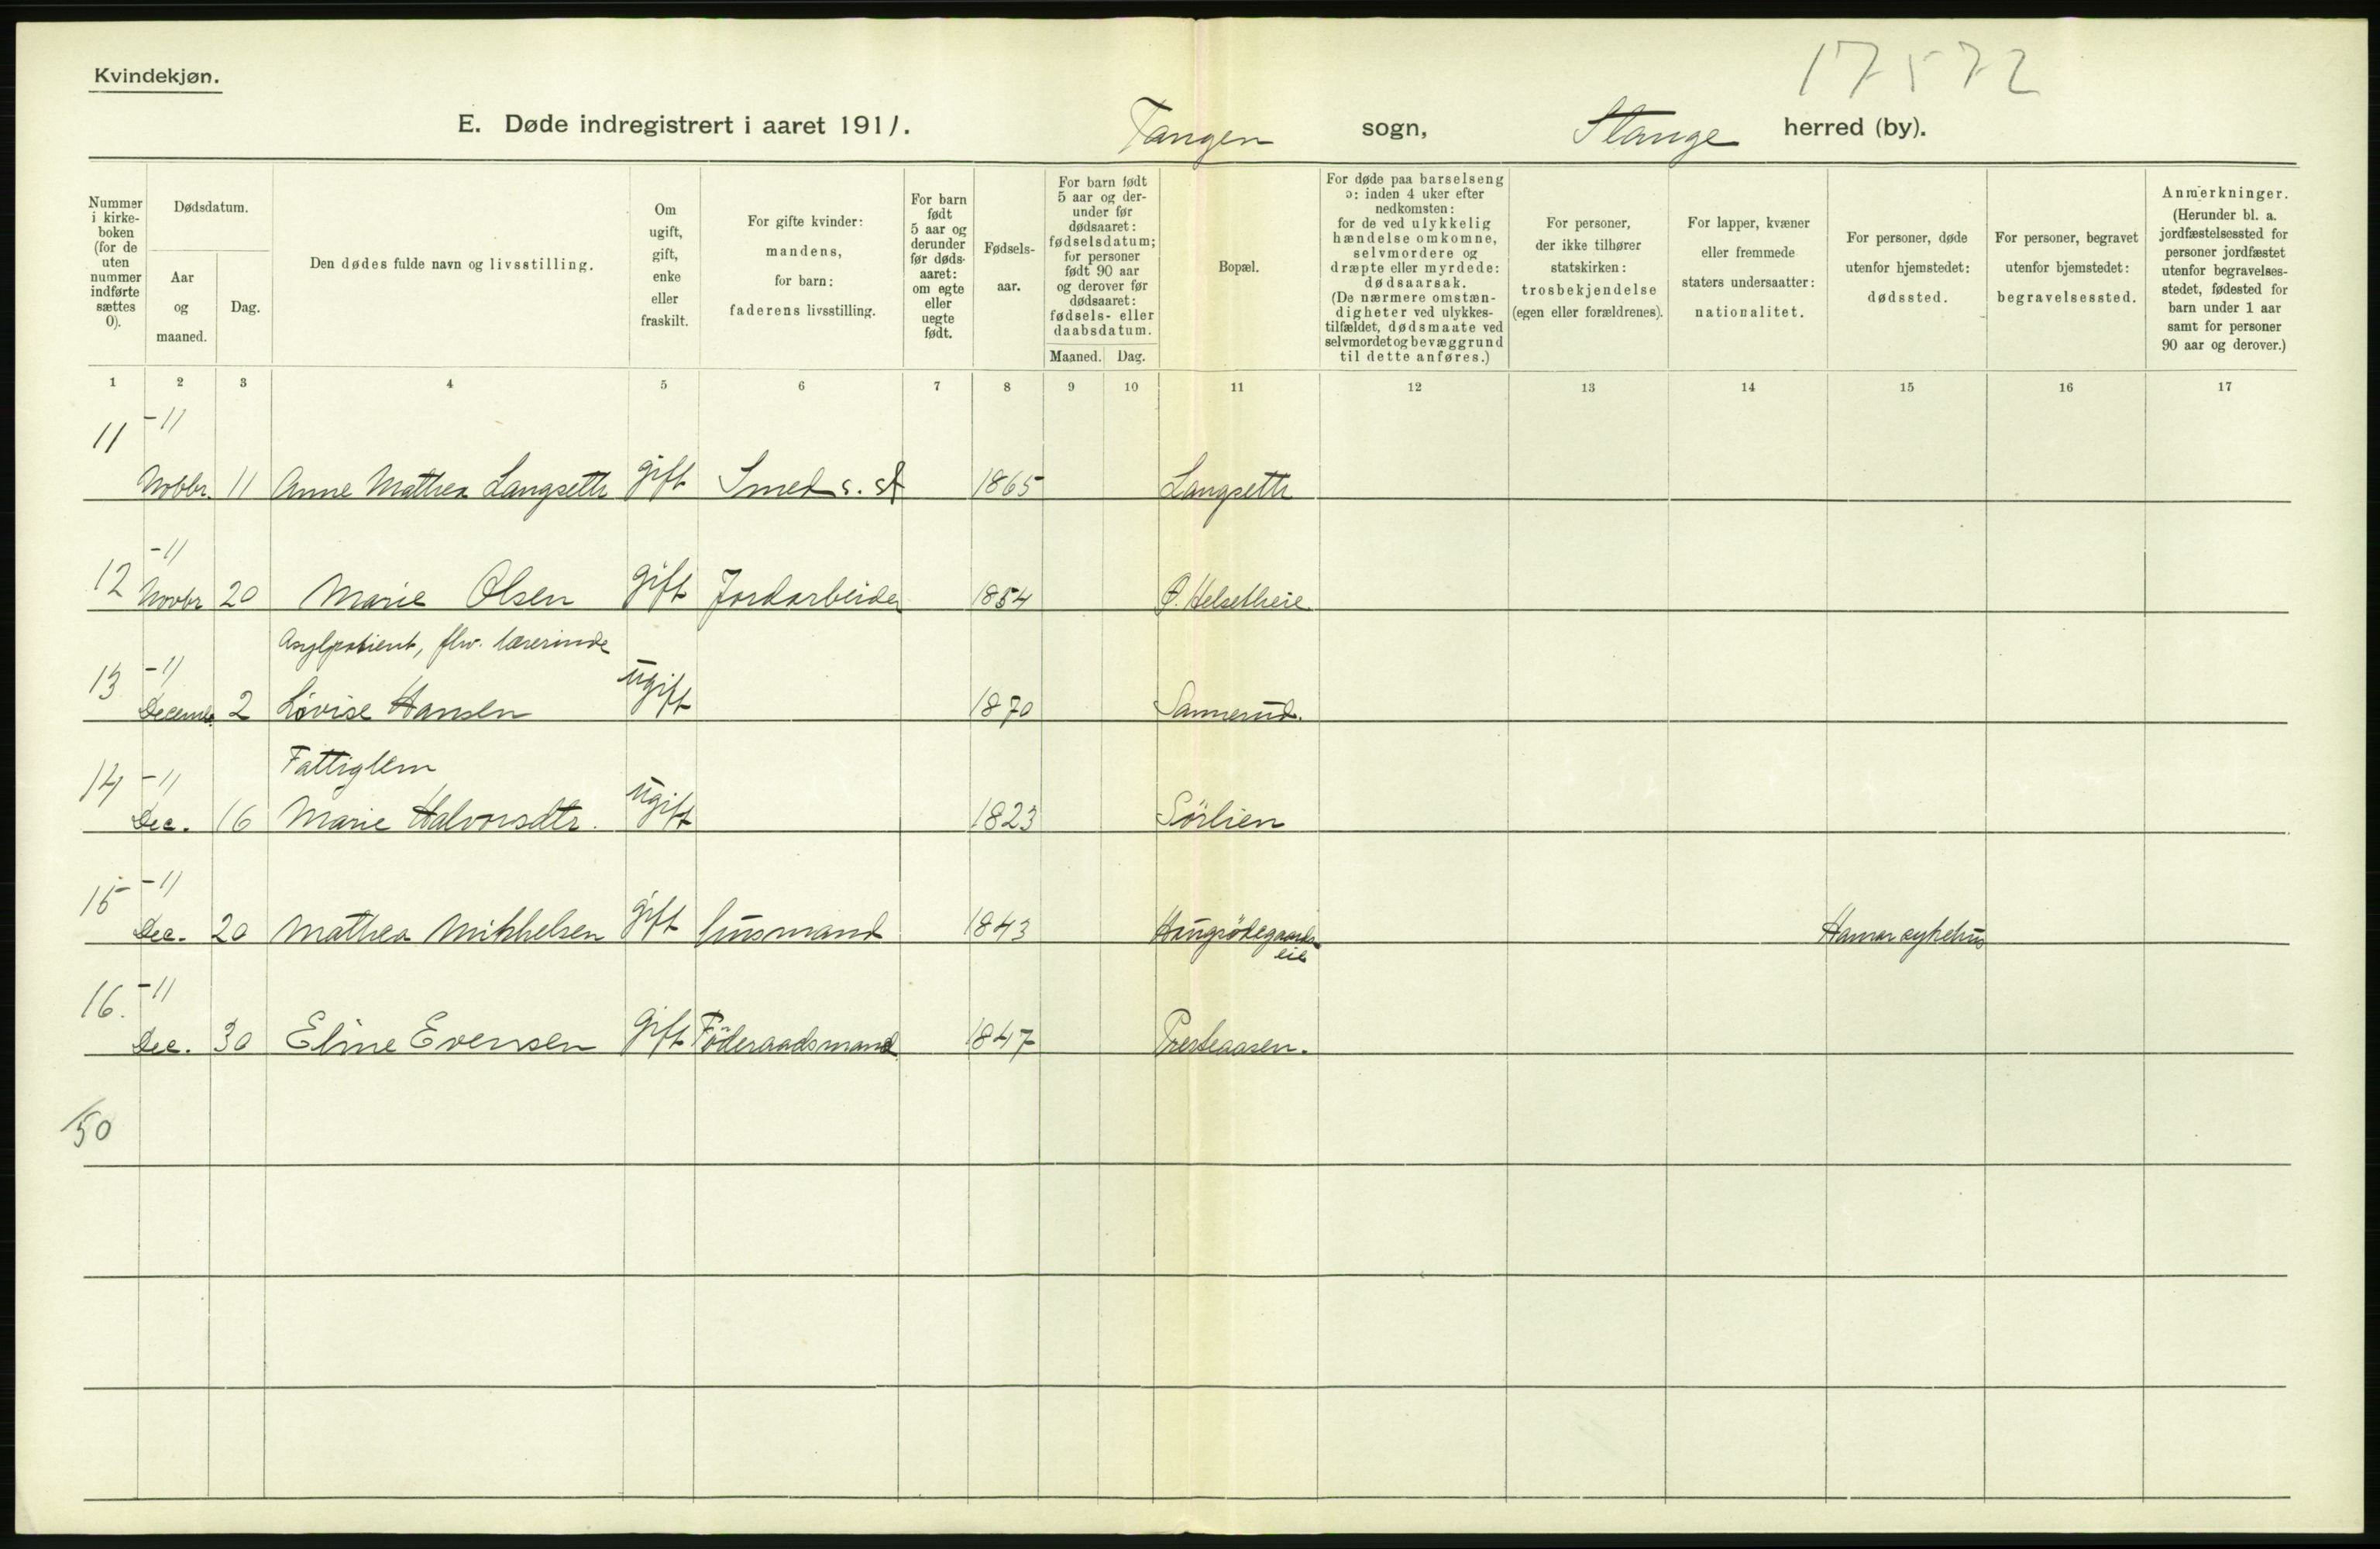 Kvindekjøn.
17572
E. Døde indregistrert i aaret 1911. Tangen sogn, Stange herred (by).
Nummer i kirke-boken (for de uten nummer indførte sættes 0).
Dødsdatum.
Aar og maaned.
Dag.
Den dødes fulde navn og livsstilling.
Om ugift, gift, enke eller fraskilt.
For gifte kvinder: mandens, for barn: faderens livsstilling.
For barn født 5 aar og derunder før døds-aaret: om egte eller uegte født.
Fødsels-aar.
For barn født 5 aar og der-under før dødsaaret: fødselsdatum; for personer født 90 aar og derover før dødsaaret: fødsels- eller daabsdatum.
Maaned. Dag.
Bopæl.
For døde paa barselseng ɔ: inden 4 uker efter nedkomsten: for de ved ulykkelig hændelse omkomne, selvmordere og dræpte eller myrdede: dødsaarsak. (De nærmere omstæn-digheter ved ulykkes-tilfældet, dødsmaate ved selvmordet og bevæggrund til dette anføres.)
For personer, der ikke tilhører statskirken: trosbekjendelse (egen eller forældrenes).
For lapper, kvæner eller fremmede staters undersaatter: nationalitet.
For personer, døde utenfor hjemstedet: dødssted.
For personer, begravet utenfor hjemstedet: begravelsessted.
Anmerkninger. (Herunder bl. a. jordfæstelsessted for personer jordfæstet utenfor begravelses-stedet, fødested for barn under 1 aar samt for personer 90 aar og derover.)
1 2 3 4 5 6 7 8 9 10 11 12 13 14 15 16 17
-11
11 Novbr. 11 Anne Mathea Langseth gift Smed s. st 1865 Langseth
-11
12 Novbr 20 Marie Olsen gift Jordarbeider 1854 Ø. Helsetheie
Asylpatient, flv. lærerinde
-11
13 Decembr. 2 Lovise Hansen ugift 1870 Sannerud.
Fattiglem
-11
14 Dec. 16 Marie Halvorsdtr. ugift 1823 Sörlien
-11
15 Dec. 20 Mathea Mikkelsen gift husmand 1843 Haugsödegaards eie Hamar sykehus
-11
16. Dec. 30 Eline Evensen gift Föderaadsmand 1847 Presteaasen.
150